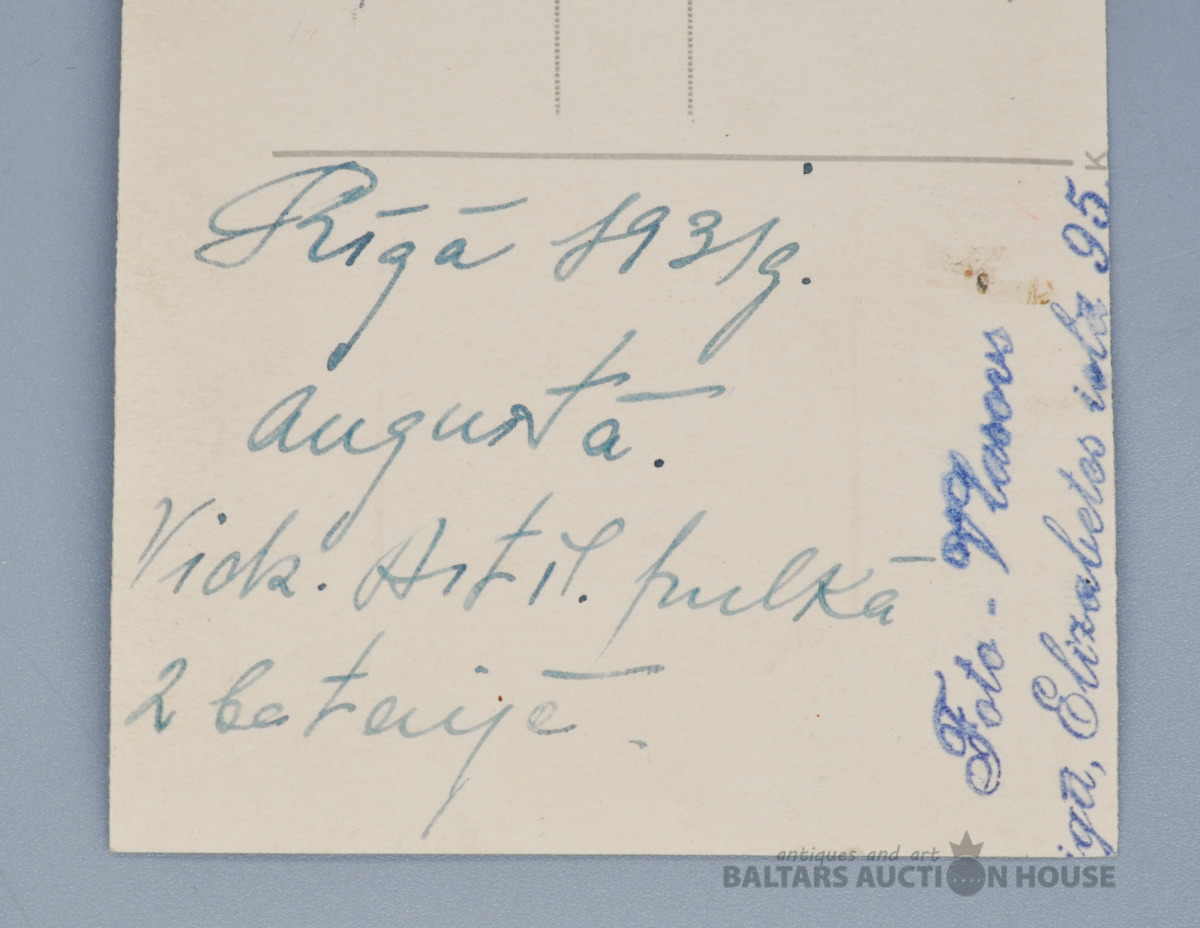 Rīgā 1931g.
Augustā.
Vidz. Artil. pulkā
2 baterijā.
Foto - Vlasovs
īgā, Elizabetes ielā 95.
K
antiques and art
BALTARS AUCTION HOUSE